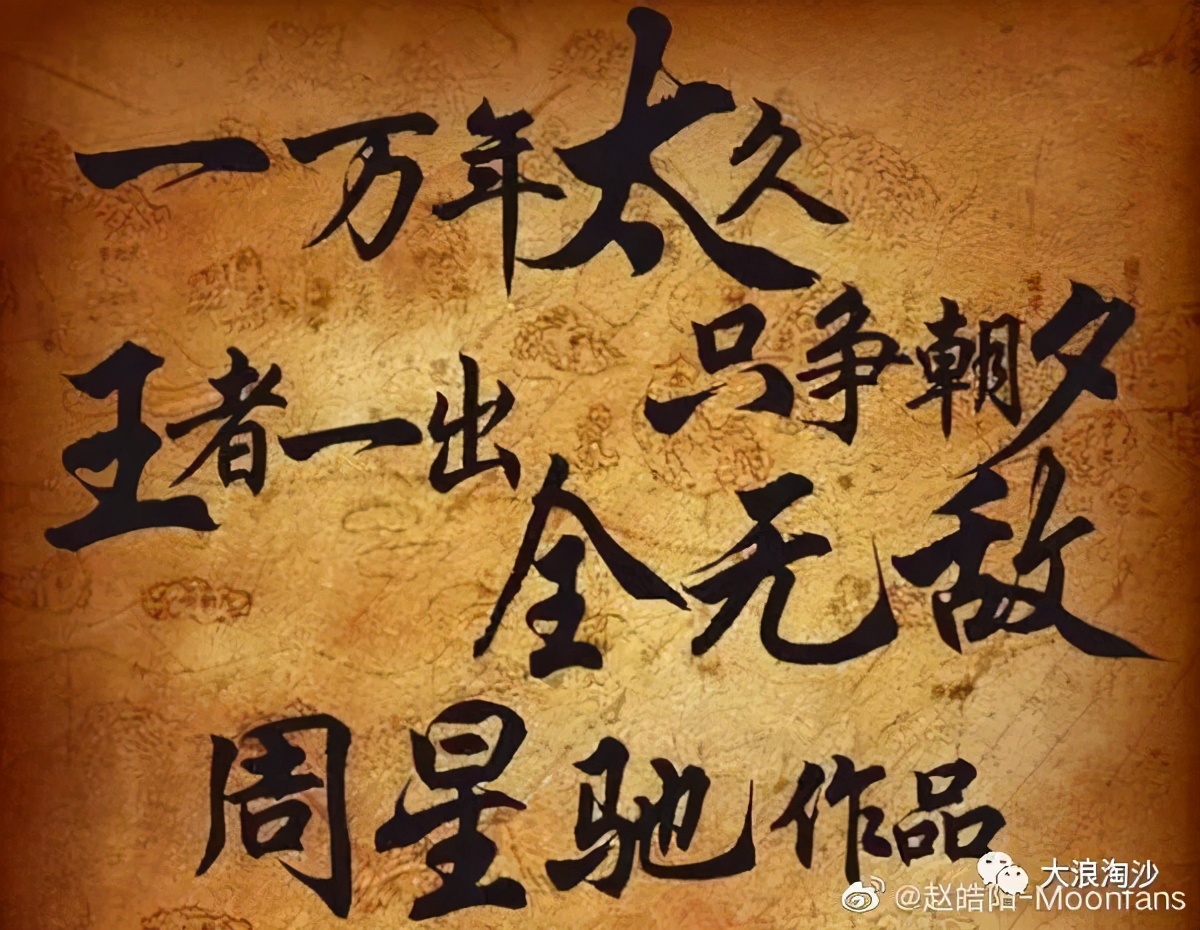 一万年太久
只争朝夕
王者一出
全无敌
周星驰作品
大浪淘沙
@赵皓阳-Moonfans